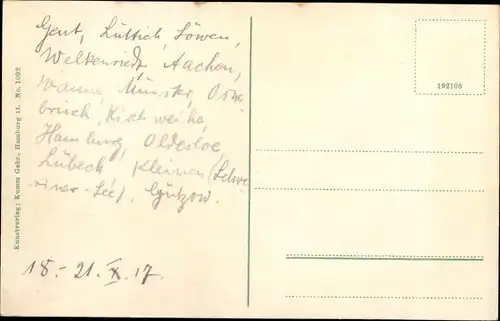 Gent, Lüttich, Löwen,
Welkenriedt, Aachen,
Wanne, Münster, Osna-
brück, Kirchweihe,
Hamburg, Oldesloe,
Lübeck, Kleinen (Schwe-
riner-See), Gützow.
18.-21. X. 17.
Kunstverlag: Kumm Gebr., Hamburg 11. No. 1092
192106